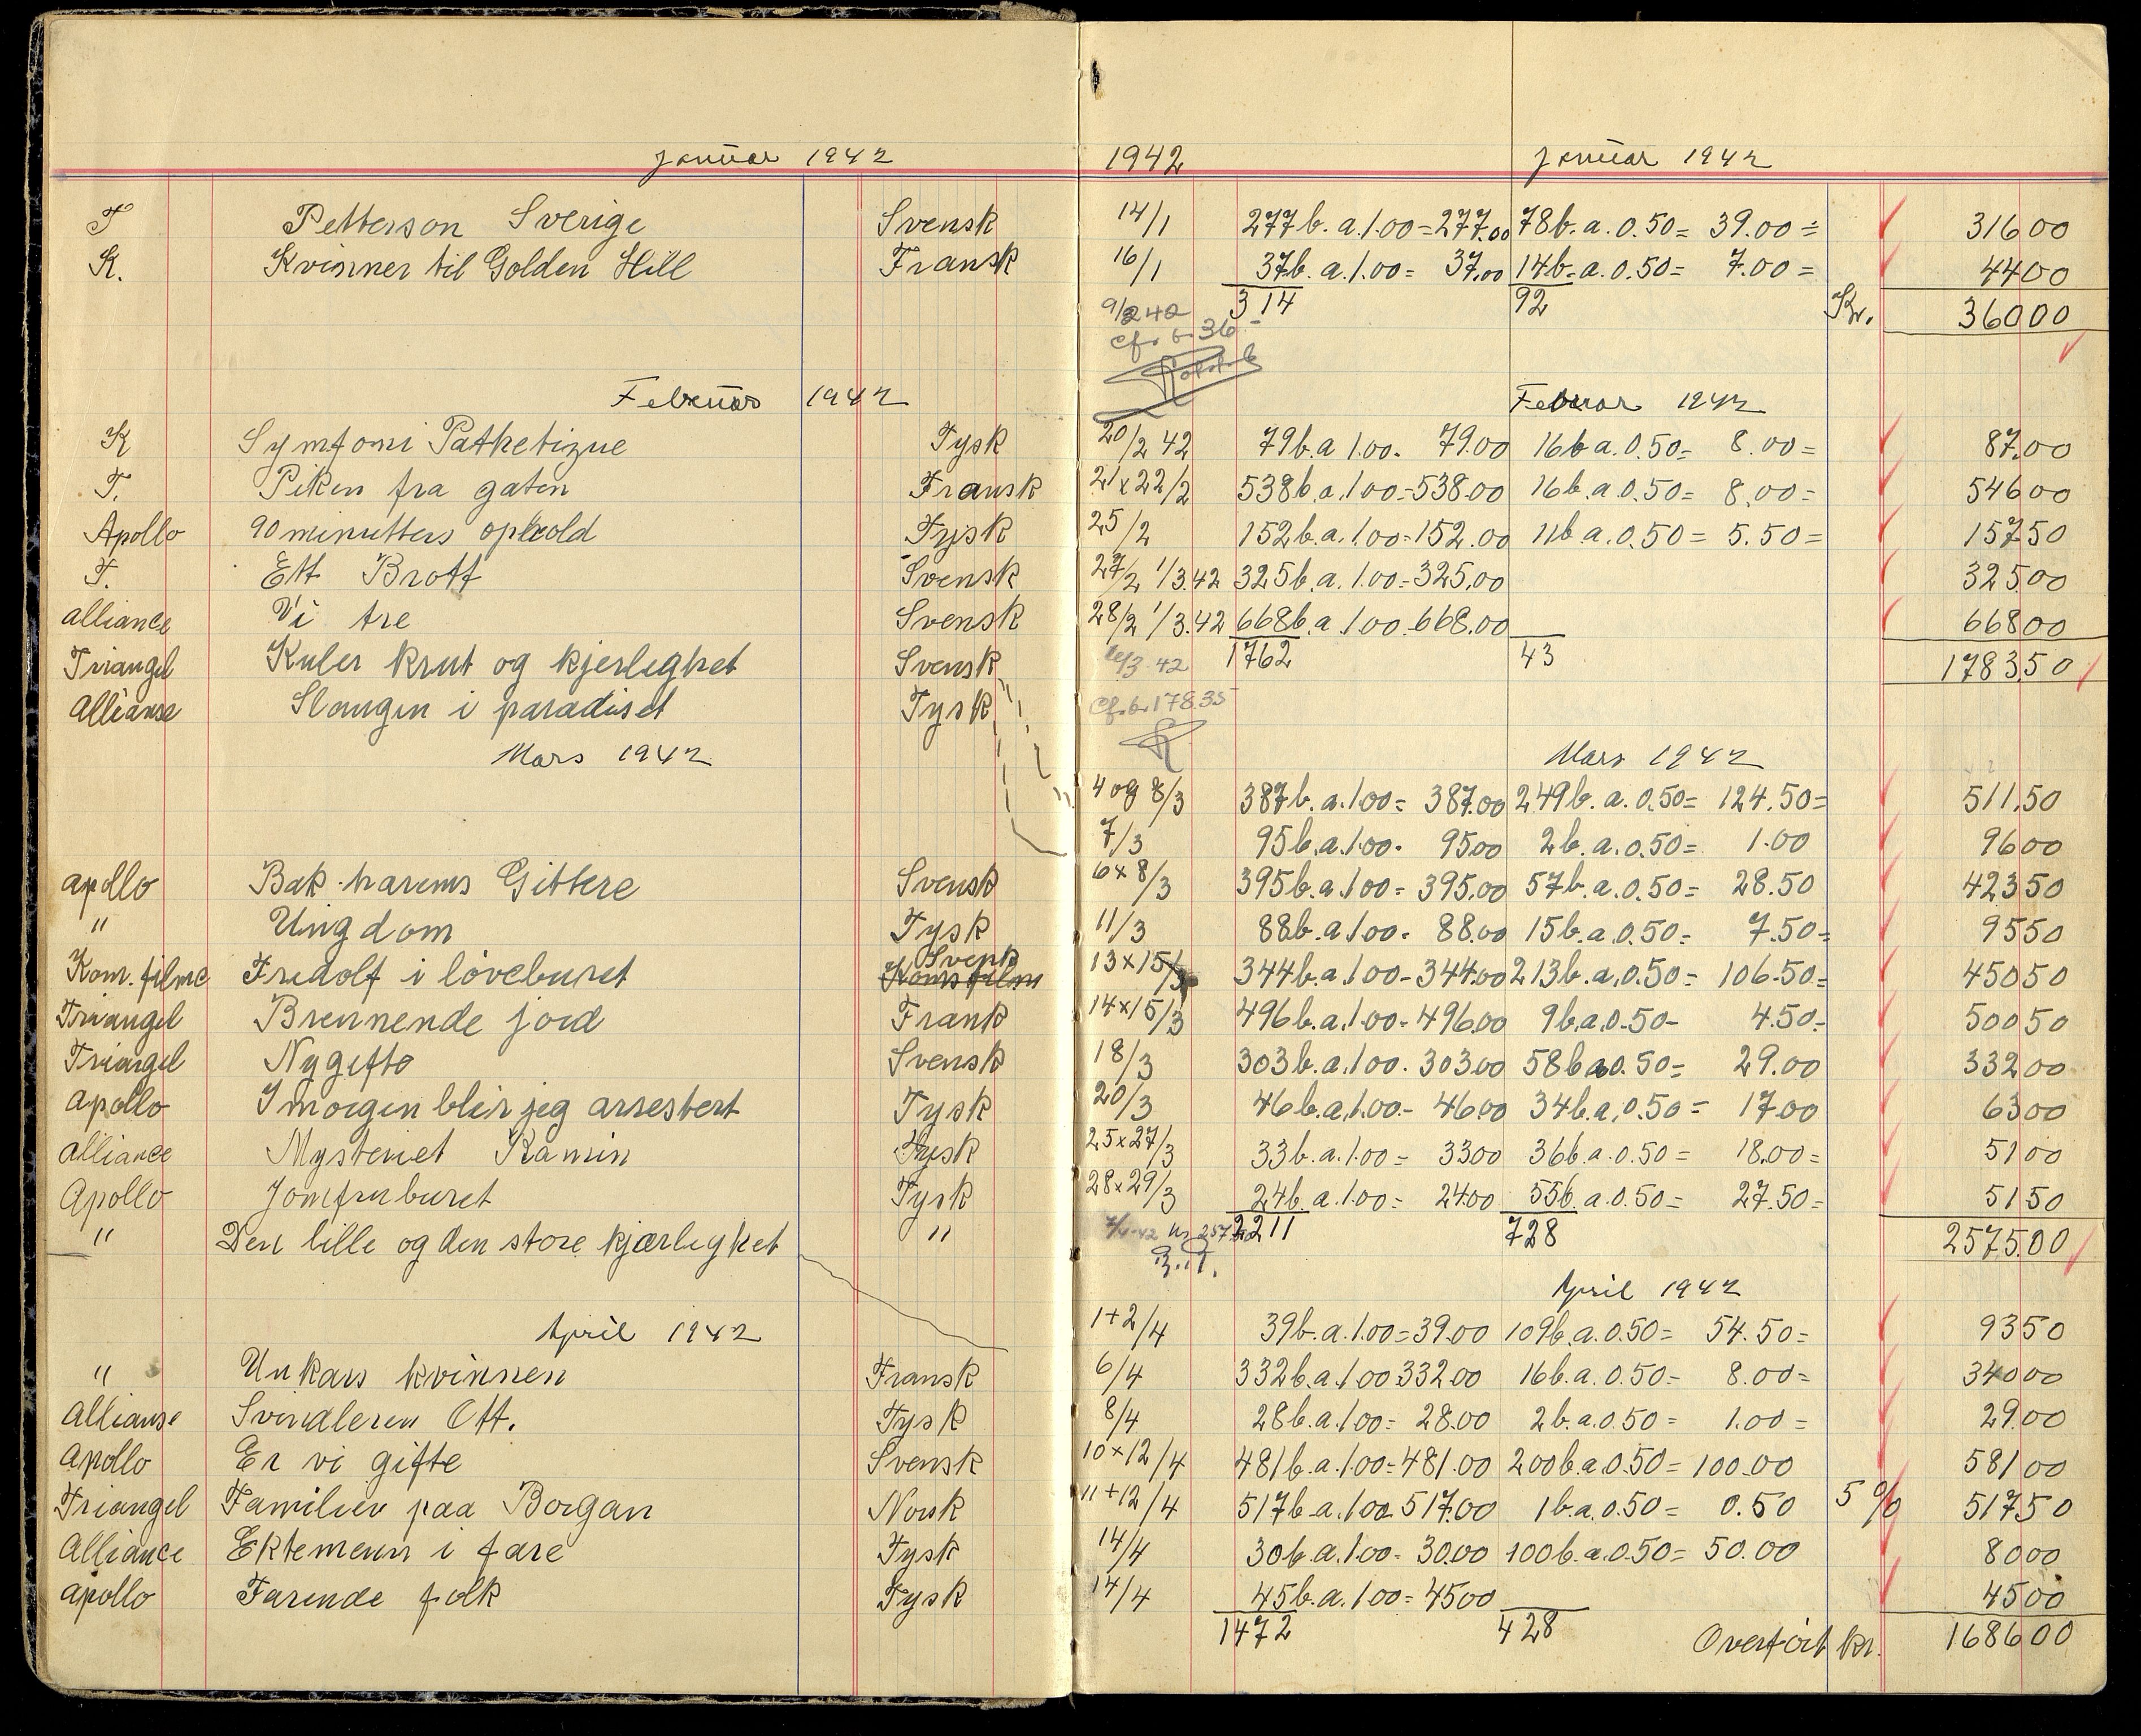 Januar 1942
T Petterson Sverige Svensk
K. Kvinner til Golden Hill Fransk
Februar 1942
K Symfoni Pathetizue Tysk
T. Piken fra gaten Fransk
Apollo 90 minutters ophold Tysk
T. Ett Brott Svensk
alliance Vi tre Svensk
Triangel Kuler krut og kjerlighet Svensk
allianse Slangen i paradiset Tysk
Mars 1942
apollo Bak harems Gittere Svensk
" Ungdom Tysk
Svensk
Kom. filme Fridolf i løveburet Koms film
Triangel Brennende jord Frank
Triangel Nygifte Svensk
apollo I morgen blir jeg arrestert Tysk
alliance Mysteriet Ramin Tysk
Apollo Jomfruburet Tysk
" Den lille og den store kjærlighet "
April 1942
" Unkars kvinnen Fransk
allianse Svindleren Ott. Tysk
apollo Er vi gifte Svensk
Triangel Familien paa Borgan Norsk
alliance Ektemenn i fare Tysk
apollo Farende folk Tysk
1942 Januar 1942
14/1 277 b. a. 1.00 = 277.00 78 b. a. 0.50 = 39.00 = 316 00
16/1 37 b. a. 1.00 = 37.00 14 b. a. 0.50 = 7.00 = 44 00
314 92 Kr. 360 00
9/2 42
cf. b. 36-
Februar 1942
20/2 42 79 b. a 1.00 - 79.00 16 b a. 0.50 = 8.00 = 87.00
21 x 22/2 538 b. a. 1.00 = 538.00 16 b. a. 0.50 = 8.00 = 546 00
25/2 152 b. a. 1.00 = 152.00 11 b a. 0.50 = 5.50 = 157 50
27/2 1/3.42 325 b. a. 1.00 = 325.00 325 00
28/2 1/3.42 668 b. a 1.00 - 668.00 668 00
1762 43 1783.50
cf. b. 178.35
Mars 1942
4 og 8/3 387 b. a. 1.00 = 387.00 249 b. a. 0.50 = 124.50 = 511.50
7/3 95 b. a. 1.00 - 95 00 2 b. a. 0.50 = 1.00 96 00
6 x 8/3 395 b. a. 1.00 = 395.00 57 b. a. 0.50 = 28.50 423 50
11/3 88 b. a 1.00 - 88.00 15 b. a. 0.50 = 7.50 = 95 50
13 x 15/3 344 b. a. 1.00 - 344.00 213 b. a. 0.50 = 106.50 = 450 50
14 x 15/3 496 b. a. 1.00 - 496.00 9 b. a 0.50 - 4.50 - 500 50
18/3 303 b. a. 1.00 - 303 00 58 b a 0.50 = 29.00 332 00
20/3 46 b. a. 1.00 - 46 00 34 b. a. 0.50 = 17.00 63 00
25 x 27/3 33 b. a. 1.00 = 33 00 36 b. a. 0.50 = 18.00 = 51 00
28 x 29/3 24 b. a. 1.00 = 24 00 55 b. a. 0.50 = 27.50 = 51 50
2211 728 2575.00
April 1942
1+2/4 39 b. a. 1.00 = 39.00 109 b. a. 0.50 = 54.50 = 93 50
6/4 332 b. a. 1.00 332 00 16 b. a. 0.50 = 8.00 = 340 00
8/4 28 b. a. 1.00 = 28.00 2 b. a 0.50 = 1.00 = 29.00
10 x 12/4 481 b. a. 1.00 = 481.00 200 b. a 0.50 = 100.00 581 00
11+12/4 517 b. a. 1.00 517.00 1 b. a. 0.50 = 0.50 5% 517 50
14/4 30 b. a. 1.00 - 30.00 100 b. a. 0.50 = 50.00 80 00
14/4 45 b. a. 1.00 = 45 00 45 00
1472 428 Overført kr. 1686 00